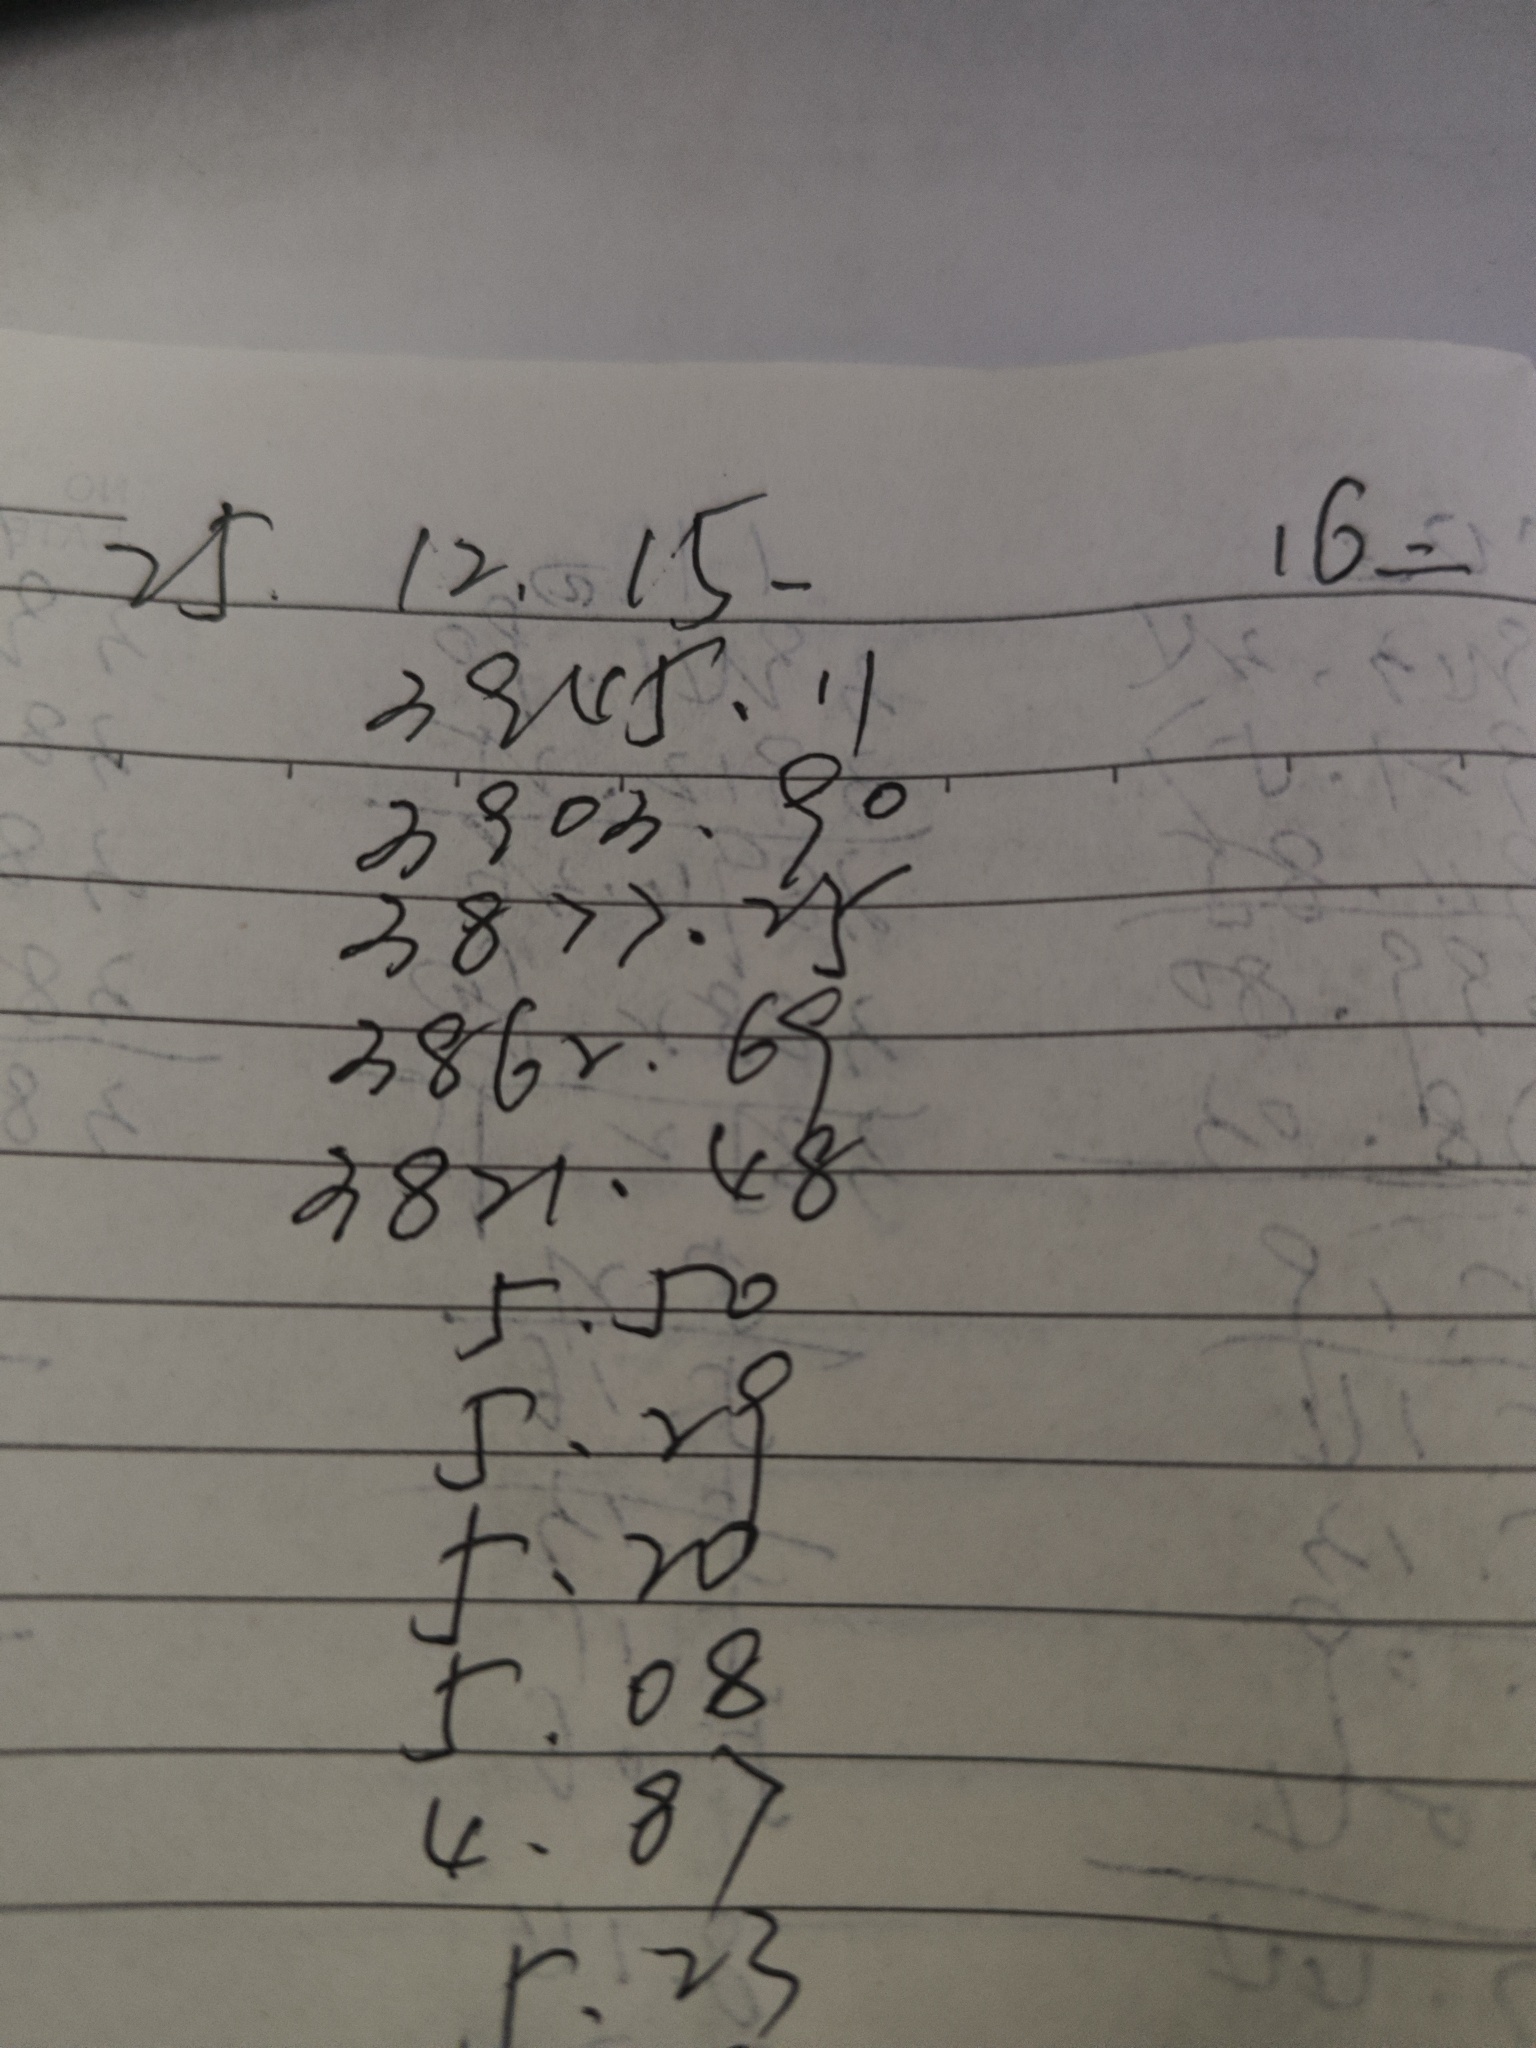 25. 12. 15-	16二
3945.11
3903.90
3877.25
3862.69
3821.48
5.50
5.29
5.20
5.08
4.87
5.23